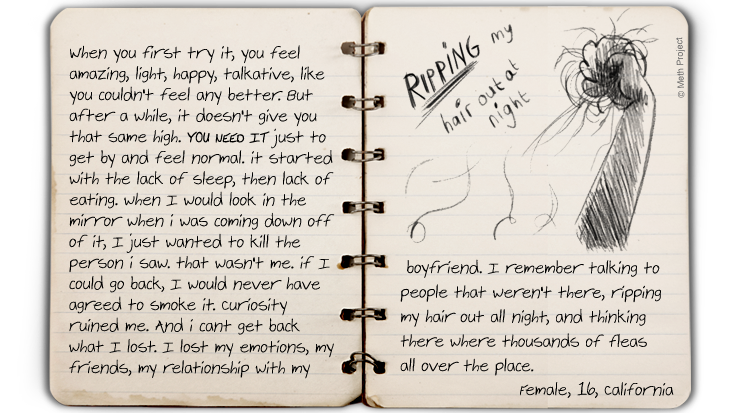 When you first try it, you feel
amazing, light, happy, talkative, like
you couldn't feel any better. But
after a while, it doesn't give you
that same high. YOU NEED IT just to
get by and feel normal. it started
with the lack of sleep, then lack of
eating. when I would look in the
mirror when i was coming down off
of it, I just wanted to kill the
person i saw. that wasn't me. if I
could go back, I would never have
agreed to smoke it. Curiosity
ruined me. And i cant get back
what I lost. I lost my emotions, my
friends, my relationship with my
RIPPING my
hair out at
night
© Meth Project
boyfriend. I remember talking to
people that weren't there, ripping
my hair out all night, and thinking
there where thousands of fleas
all over the place.
Female, 16, California